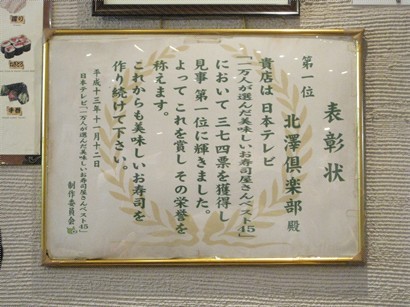 表彰状
第一位
北澤倶楽部殿
貴店は日本テレビ
「一万人が選んだ美味しいお寿司屋さんベスト45」
において三七四票を獲得し
見事第一位に輝きました。
よってこれを賞しその栄誉を
称えます。
これからも美味しいお寿司を
作り続けて下さい。
平成十三年十一月十二日
日本テレビ「一万人が選んだ美味しいお寿司屋さんベスト45」
制作委員会